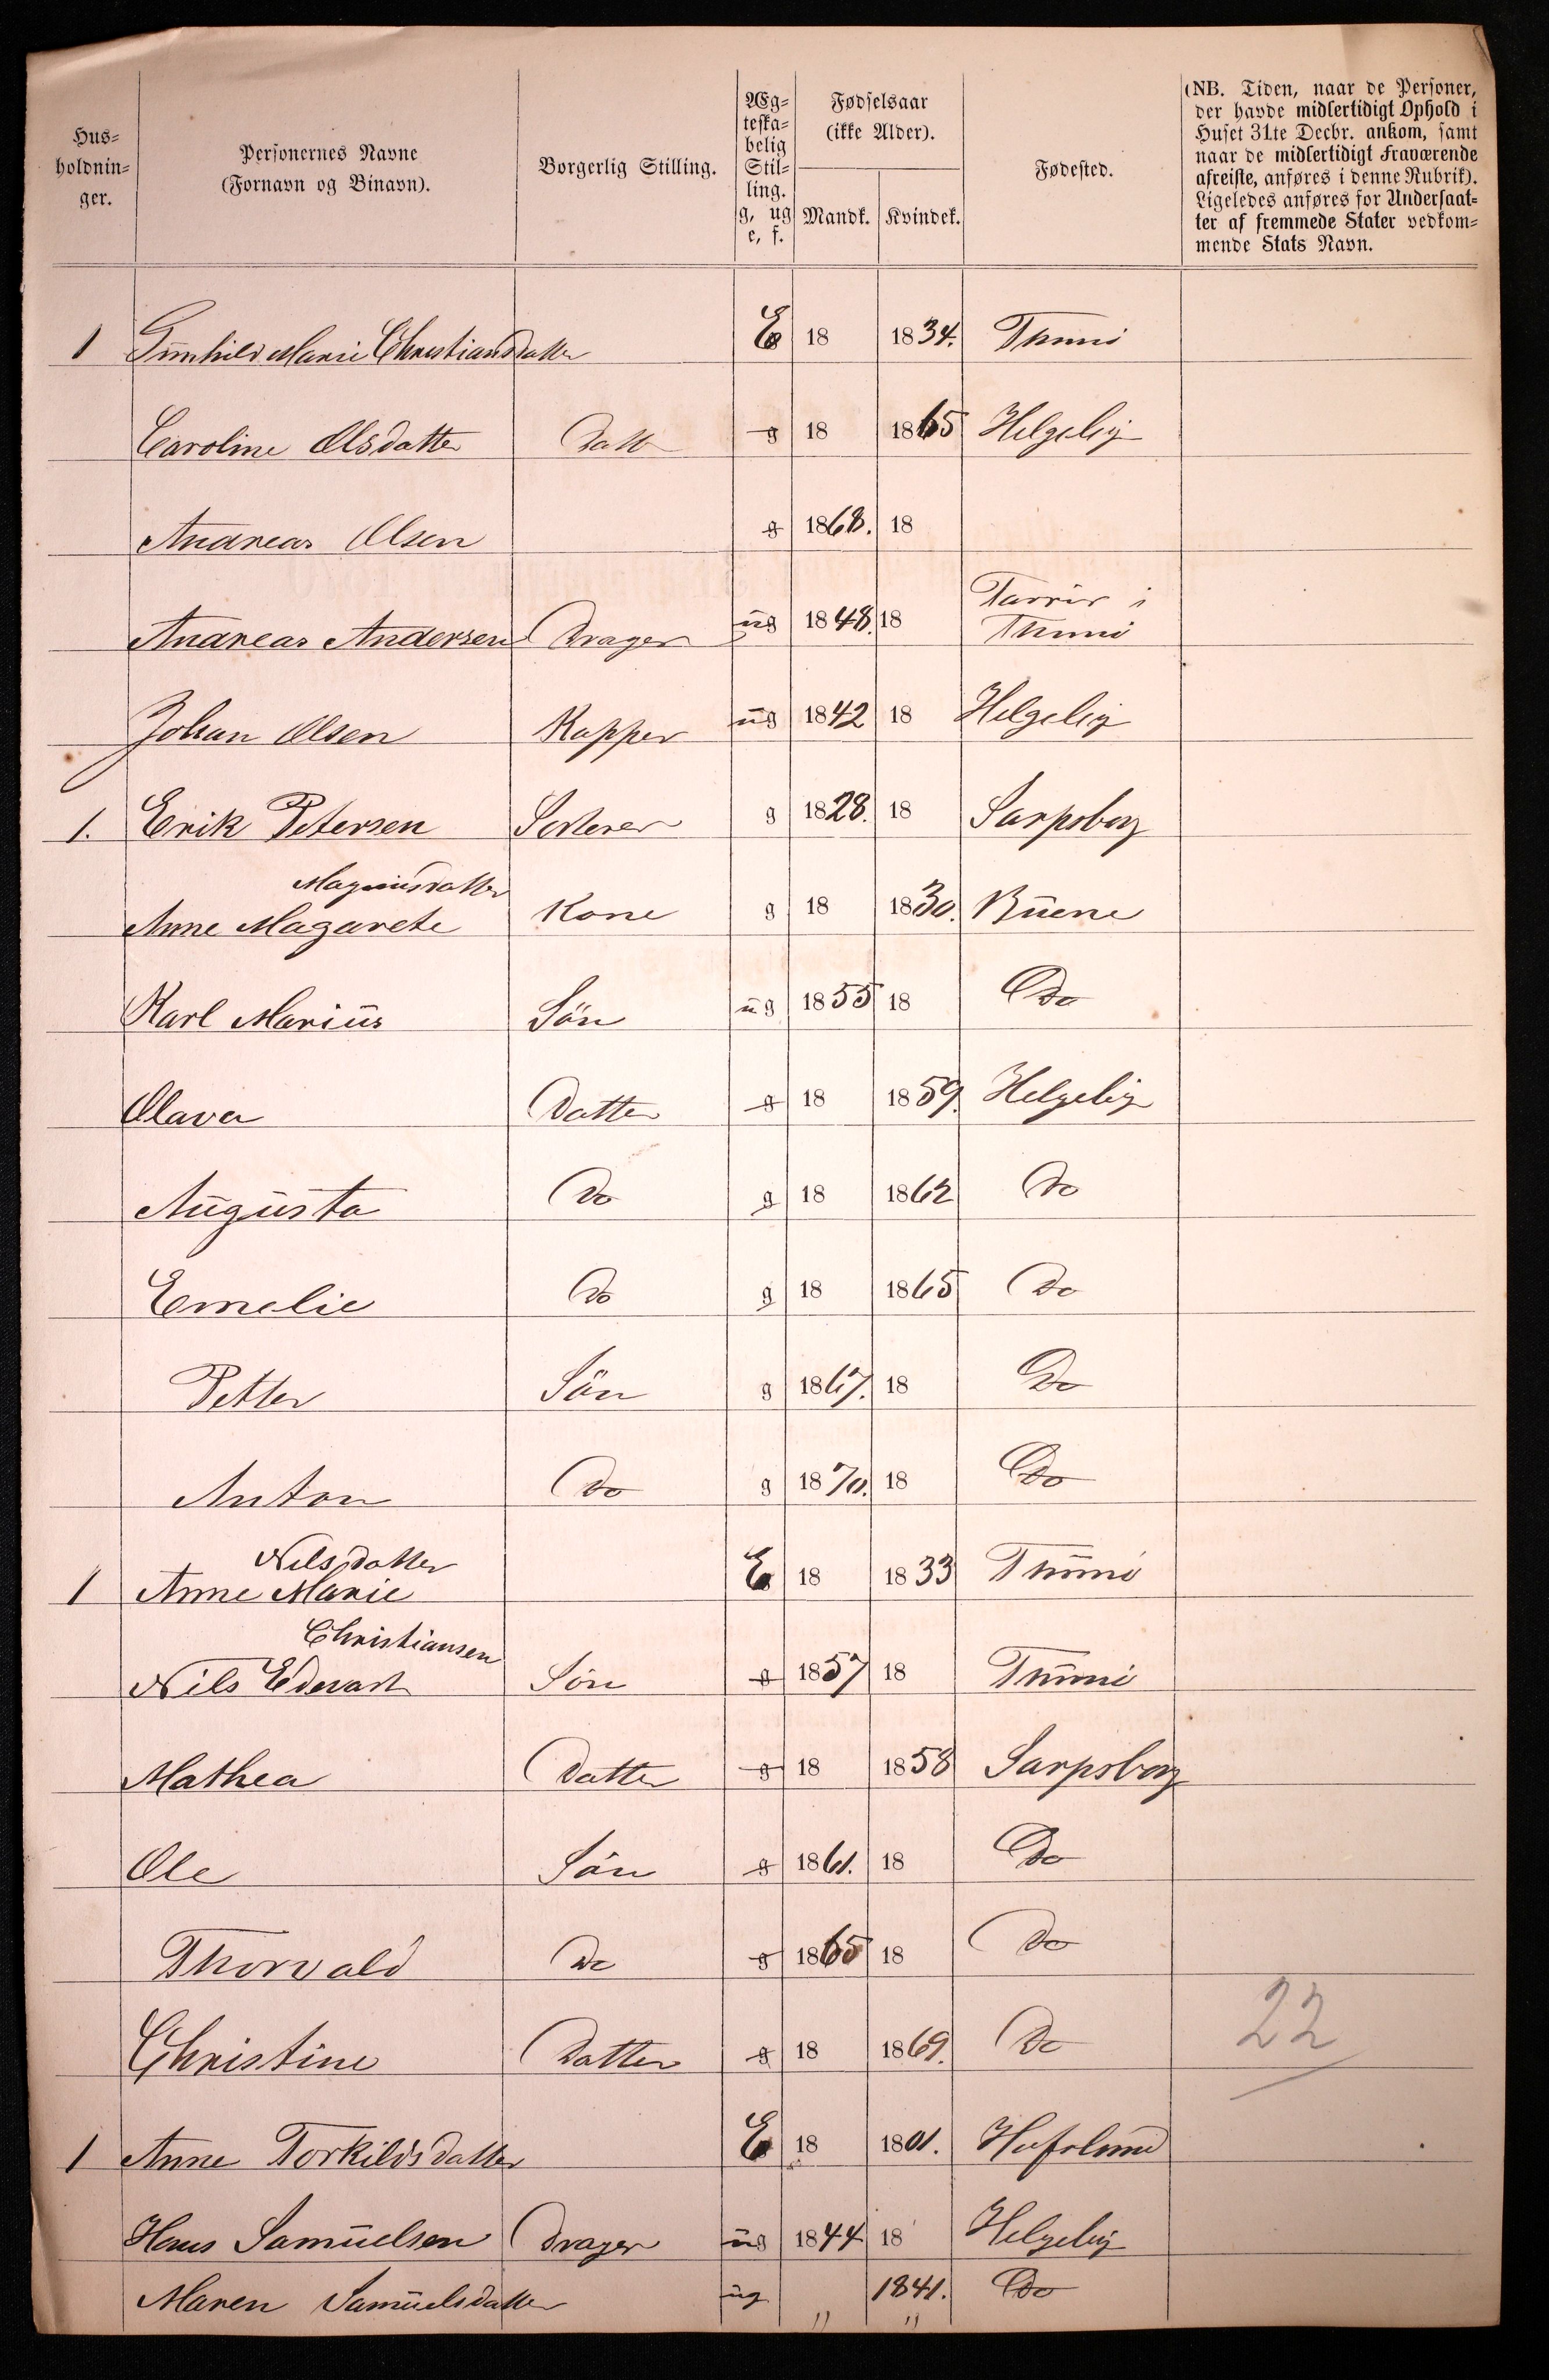 Hus-
holdnin-
ger.
Personernes Navne
(Fornavn og Binavn).
Borgerlig Stilling.
Æg-
teska-
belig
Stil-
ling.
g, ug
e, f.
Fødselsaar
(ikke Alder).
Mandk. Kvindek.
Fødested.
(NB. Tiden, naar de Personer,
der havde midlertidigt Ophold i
Huset 31te Decbr. ankom, samt
naar de midlertidigt Fraværende
afreiste, anføres i denne Rubrik).
Ligeledes anføres for Undersaat-
ter af fremmede Stater vedkom-
mende Stats Navn.
1 Gunhild Marie Christiansdatter E 18 1834. Thunø
Caroline Olsdatter Datt g 18 1865 Helgeby
Andreas Olsen g 1868. 18
i
Andreas Andersen Drager ug 1848. 18 Thunø
Johan Olsen Kapper ug 1842 18 Helgeby
1. Erik Petersen Sorterer g 1828. 18 Sarpsborg
Magnusdatter
Anne Magarete Kone g 18 1830. Thuene
Karl Marius Sön ug 1855 18 Do
Olava Datter g 18 1859. Helgeby
Augusta Do g 18 1862 Do
Emelie Do g 18 1865 Do
Petter Sön g 1867. 18 Do
Anton Do g 1870. 18 Do
Nilsdatter
1 Anne Marie E 18 1833 Thunø
Christiansen
Nils Edevart Sön g 1857 18 Thunø
Mathea Datter g 18 1858 Sarpsborg
Ole Sön g 1861. 18 Do
Thorvald Do g 1865 18 Do
Christine Datter g 18 1869. Do 22
1 Anne Torkildsdatter E 18 1801. Hafslund
Hans Samuelsen Drager ug 1844 18 Helgeby
Maren Samuelsdatter ug " 1841. " Do